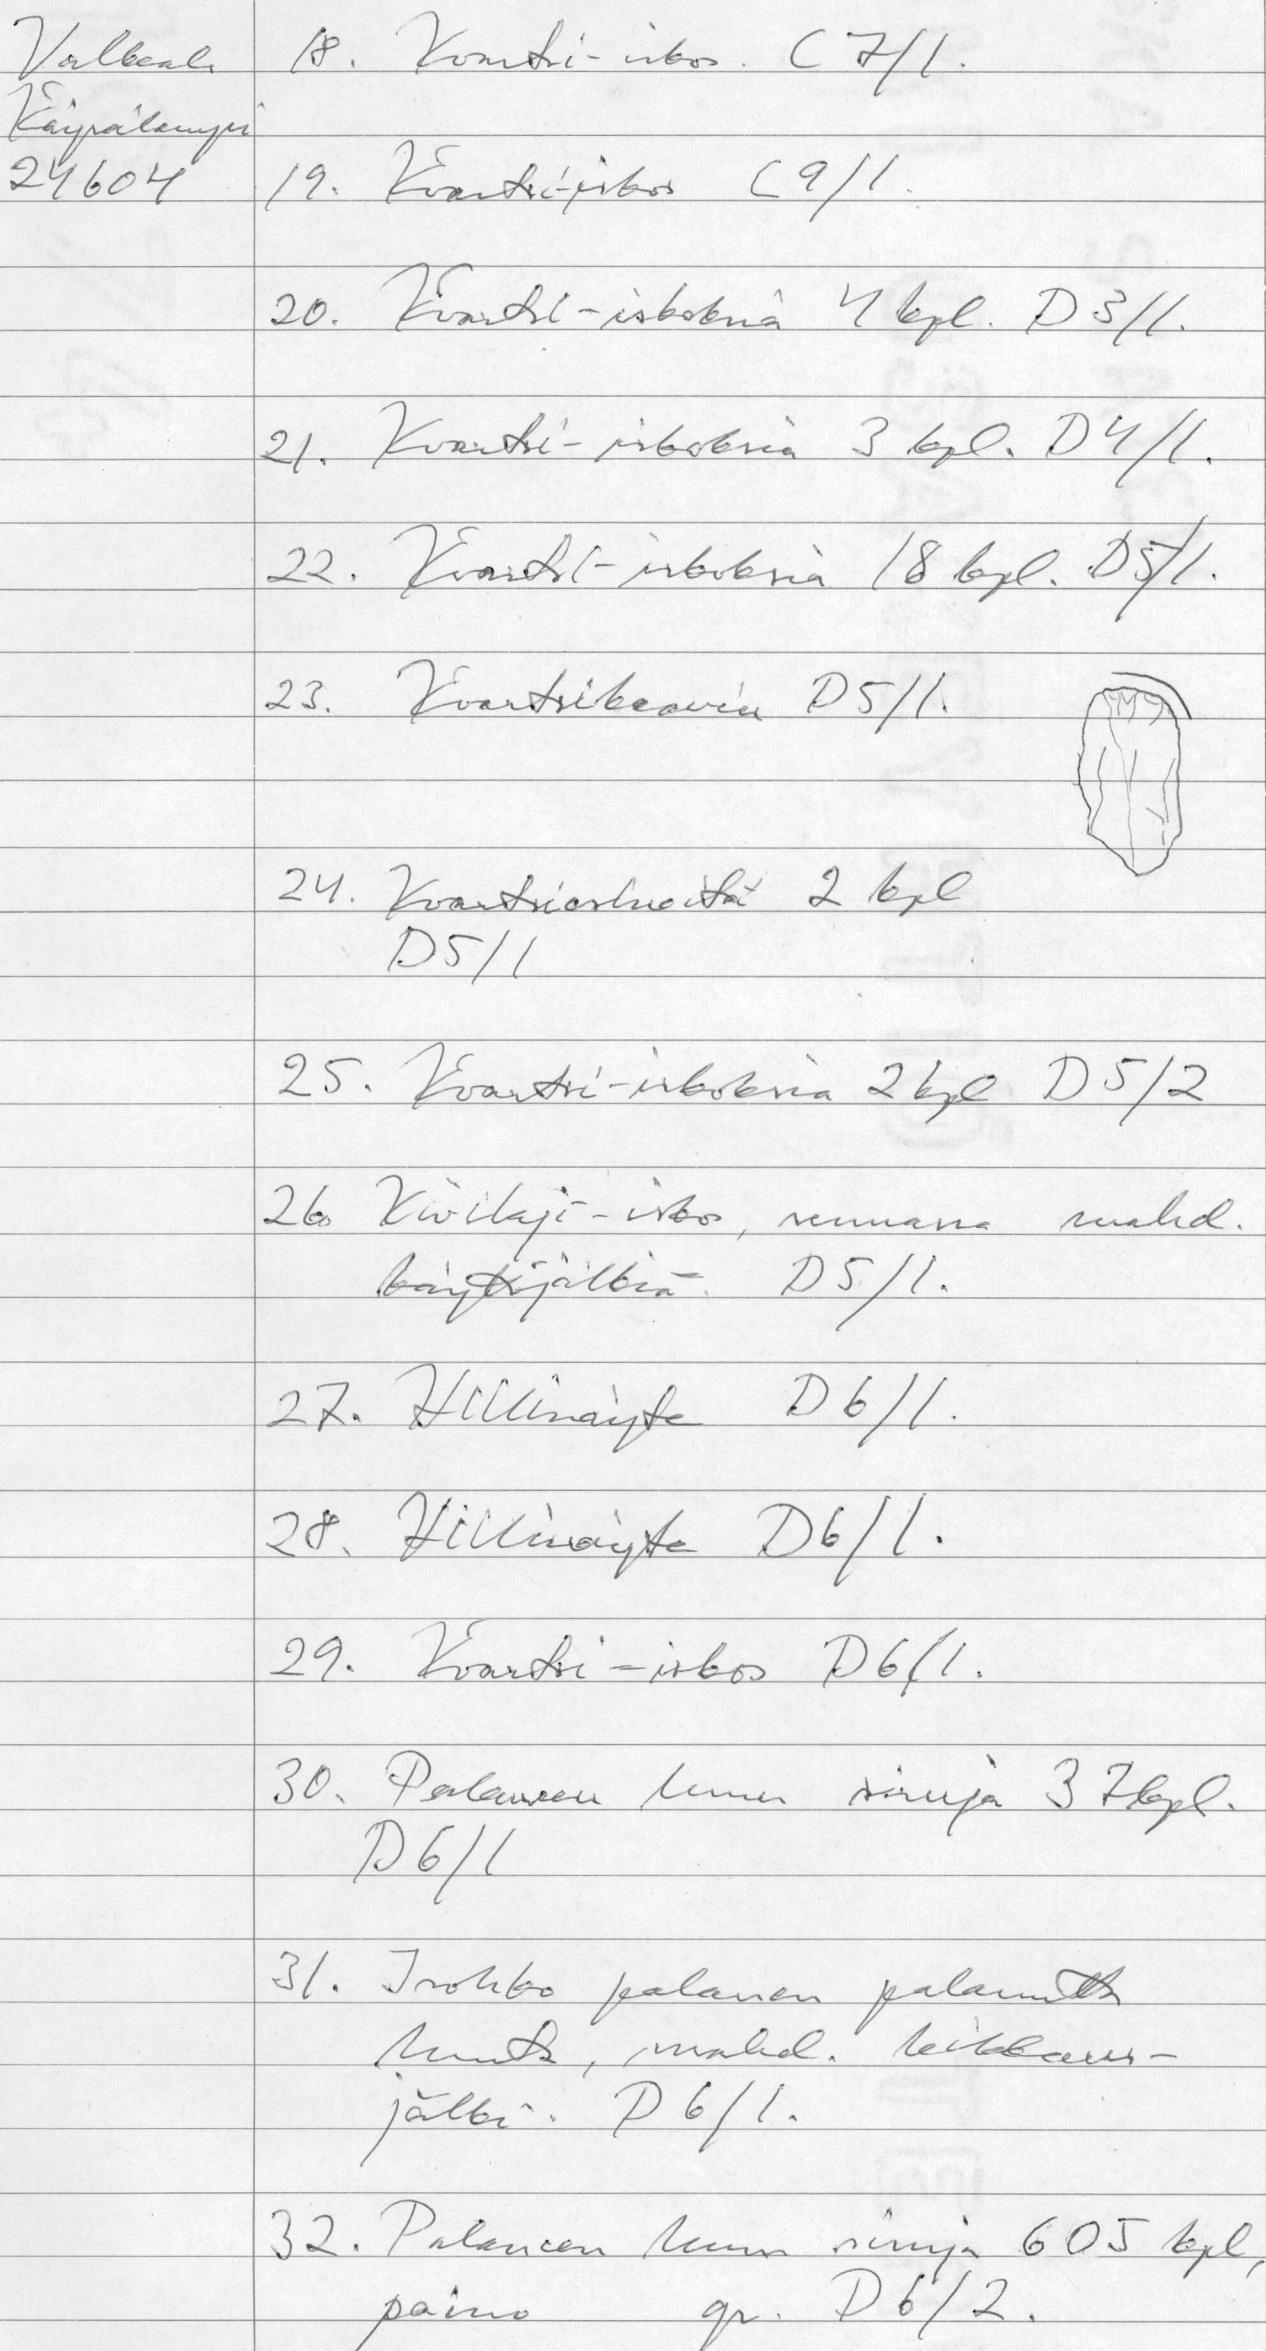 Valkeala
Käyrälampi
24604
18. Kvartsi-iskos. C7/1.
19. Kvartsi-iskos C9/1.
20. Kvartsi-iskoksia 4 kpl. D3/1.
21. Kvartsi-iskoksia 3 kpl. D4/1.
22. Kvartsi-iskoksia 18 kpl. D5/1.
23. Kvartsikaavin D5/1.
24. Kvartsiesineitä 2 kpl
D5/1
25. Kvartsi-iskoksia 2 kpl D5/2
26. Kivilaji-iskos, reunassa mahd.
käyttöjälkiä. D5/1.
27. Hiilinäyte D6/1.
28. Hiilinäyte D6/1.
29. Kvartsi-iskos D6/1.
30. Palaneen luun siruja 37 kpl.
D6/1
31. Isohko palanen palanutta
luuta, mahd. leikkaus-
jälki. D6/1.
32. Palaneen luun siruja 605 kpl,
paino gr. D6/2.